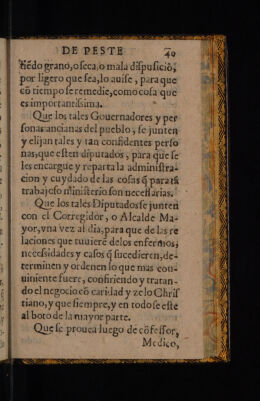 DE PESTE 40
tiẽdo grano, o seca, o mala dispusiciõ,
por ligero que sea, lo auise, para que
cõ tiempo se remedie, como cosa que
es importantissima.
Que los tales Gouernadores y per
sonas ancianas del pueblo, se junten
y elijan tales y tan confidentes perso
nas, que esten diputados, para que se
les encargue y reparta la administra-
cion y cuydado de las cosas q̃ para tã
trabajoso ministerio son necessarias.
Que los tales Diputados se junten
con el Corregidor, o Alcalde Ma-
yor, vna vez al dia, para que de las re
laciones que tuuierẽ delos enfermos,
necessidades y casos q̃ sucedieren, de-
terminen y ordenen lo que mas con-
uiniente fuere, confiriendo y tratan-
do el negocio cõ caridad y zelo Chris
tiano, y que siempre, y en todo se este
al boto de la mayor parte.
Que se prouea luego de cõfessor,
Medico,